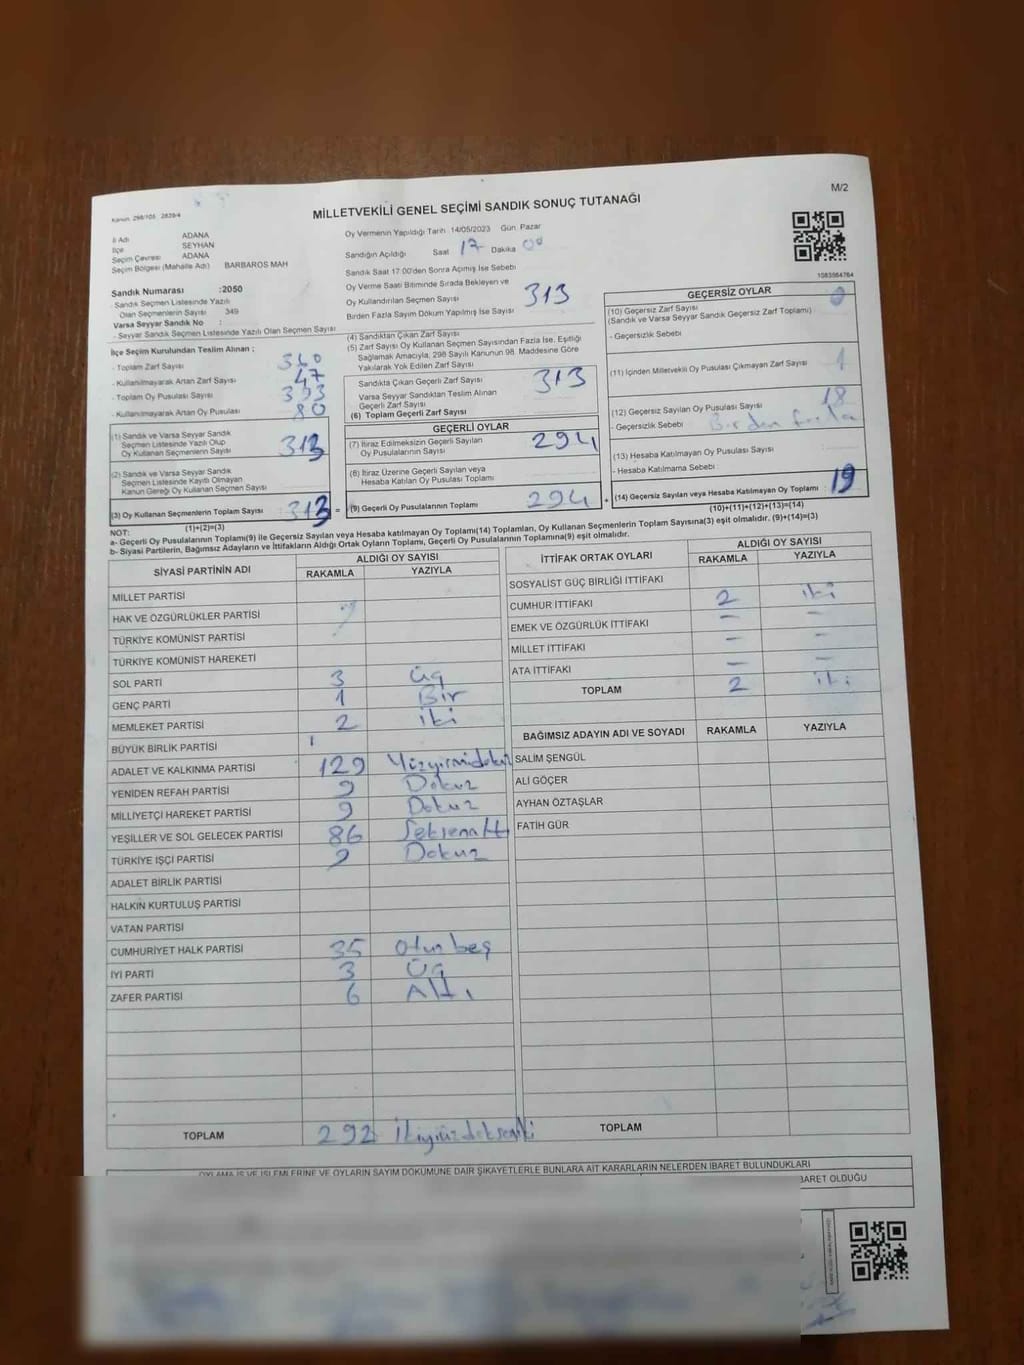 M/2
Kanun: 298/105 2839/4
MİLLETVEKİLİ GENEL SEÇİMİ SANDIK SONUÇ TUTANAĞI
İl Adı ADANA
İlçe SEYHAN
Seçim Çevresi ADANA
Seçim Bölgesi (Mahalle Adı) BARBAROS MAH
Sandık Numarası :2050
- Sandık Seçmen Listesinde Yazılı
Olan Seçmenlerin Sayısı 349
Varsa Seyyar Sandık No :
- Seyyar Sandık Seçmen Listesinde Yazılı Olan Seçmen Sayısı
İlçe Seçim Kurulundan Teslim Alınan ;
- Toplam Zarf Sayısı 360
- Kullanılmayarak Artan Zarf Sayısı 47
- Toplam Oy Pusulası Sayısı 393
- Kullanılmayarak Artan Oy Pusulası 80
(1) Sandık ve Varsa Seyyar Sandık
Seçmen Listesinde Yazılı Olup
Oy Kullanan Seçmenlerin Sayısı 313
(2) Sandık ve Varsa Seyyar Sandık
Seçmen Listesinde Kayıtlı Olmayan
Kanun Gereği Oy Kullanan Seçmen Sayısı
(3) Oy Kullanan Seçmenlerin Toplam Sayısı 313 =
(1)+(2)=(3)
Oy Vermenin Yapıldığı Tarih 14/05/2023 Gün Pazar
Sandığın Açıldığı Saat 17 Dakika 00
Sandık Saat 17.00'den Sonra Açılmış İse Sebebi
Oy Verme Saati Bitiminde Sırada Bekleyen ve
Oy Kullandırılan Seçmen Sayısı
Birden Fazla Sayım Döküm Yapılmış İse Sayısı
313
(4) Sandıktan Çıkan Zarf Sayısı
(5) Zarf Sayısı Oy Kullanan Seçmen Sayısından Fazla İse, Eşitliği
Sağlamak Amacıyla, 298 Sayılı Kanunun 98. Maddesine Göre
Yakılarak Yok Edilen Zarf Sayısı
Sandıkta Çıkan Geçerli Zarf Sayısı 313
Varsa Seyyar Sandıktan Teslim Alınan
Geçerli Zarf Sayısı
(6) Toplam Geçerli Zarf Sayısı
GEÇERLİ OYLAR
(7) İtiraz Edilmeksizin Geçerli Sayılan
Oy Pusulalarının Sayısı 294
(8) İtiraz Üzerine Geçerli Sayılan veya
Hesaba Katılan Oy Pusulası Toplamı
(9) Geçerli Oy Pusulalarının Toplamı 294 +
1083564764
GEÇERSİZ OYLAR
(10) Geçersiz Zarf Sayısı
(Sandık ve Varsa Seyyar Sandık Geçersiz Zarf Toplamı)
- Geçersizlik Sebebi :
(11) İçinden Milletvekili Oy Pusulası Çıkmayan Zarf Sayısı 1
(12) Geçersiz Sayılan Oy Pusulası Sayısı 18
- Geçersizlik Sebebi : Birden fazla
(13) Hesaba Katılmayan Oy Pusulası Sayısı
- Hesaba Katılmama Sebebi :
(14) Geçersiz Sayılan veya Hesaba Katılmayan Oy Toplamı 19
(10)+(11)+(12)+(13)=(14)
NOT:
a- Geçerli Oy Pusulalarının Toplamı(9) ile Geçersiz Sayılan veya Hesaba katılmayan Oy Toplamı(14) Toplamları, Oy Kullanan Seçmenlerin Toplam Sayısına(3) eşit olmalıdır. (9)+(14)=(3)
b- Siyasi Partilerin, Bağımsız Adayların ve İttifakların Aldığı Ortak Oyların Toplamı, Geçerli Oy Pusulalarının Toplamına(9) eşit olmalıdır.
SİYASİ PARTİNİN ADI ALDIĞI OY SAYISI
RAKAMLA YAZIYLA
MİLLET PARTİSİ
HAK VE ÖZGÜRLÜKLER PARTİSİ
TÜRKİYE KOMÜNİST PARTİSİ
TÜRKİYE KOMÜNİST HAREKETİ
SOL PARTİ 3 Üç
GENÇ PARTİ 1 Bir
MEMLEKET PARTİSİ 2 iki
BÜYÜK BİRLİK PARTİSİ
ADALET VE KALKINMA PARTİSİ 129 Yüzyirmidokuz
YENİDEN REFAH PARTİSİ 9 Dokuz
MİLLİYETÇİ HAREKET PARTİSİ 9 Dokuz
YEŞİLLER VE SOL GELECEK PARTİSİ 86 Seksenaltı
TÜRKİYE İŞÇİ PARTİSİ 9 Dokuz
ADALET BİRLİK PARTİSİ
HALKIN KURTULUŞ PARTİSİ
VATAN PARTİSİ
CUMHURİYET HALK PARTİSİ 35 Otuz beş
İYİ PARTİ 3 Üç
ZAFER PARTİSİ 6 Altı
TOPLAM 292 İkiyüzdoksaniki
İTTİFAK ORTAK OYLARI ALDIĞI OY SAYISI
RAKAMLA YAZIYLA
SOSYALİST GÜÇ BİRLİĞİ İTTİFAKI
CUMHUR İTTİFAKI 2 iki
EMEK VE ÖZGÜRLÜK İTTİFAKI - -
MİLLET İTTİFAKI - -
ATA İTTİFAKI - -
TOPLAM 2 iki
BAĞIMSIZ ADAYIN ADI VE SOYADI RAKAMLA YAZIYLA
SALİM ŞENGÜL
ALİ GÖÇER
AYHAN ÖZTAŞLAR
FATİH GÜR
TOPLAM
OYLAMA İŞ VE İŞLEMLERİNE VE OYLARIN SAYIM DÖKÜMÜNE DAİR ŞİKAYETLERLE BUNLARA AİT KARARLARIN NELERDEN İBARET BULUNDUKLARI
BARET OLDUĞU